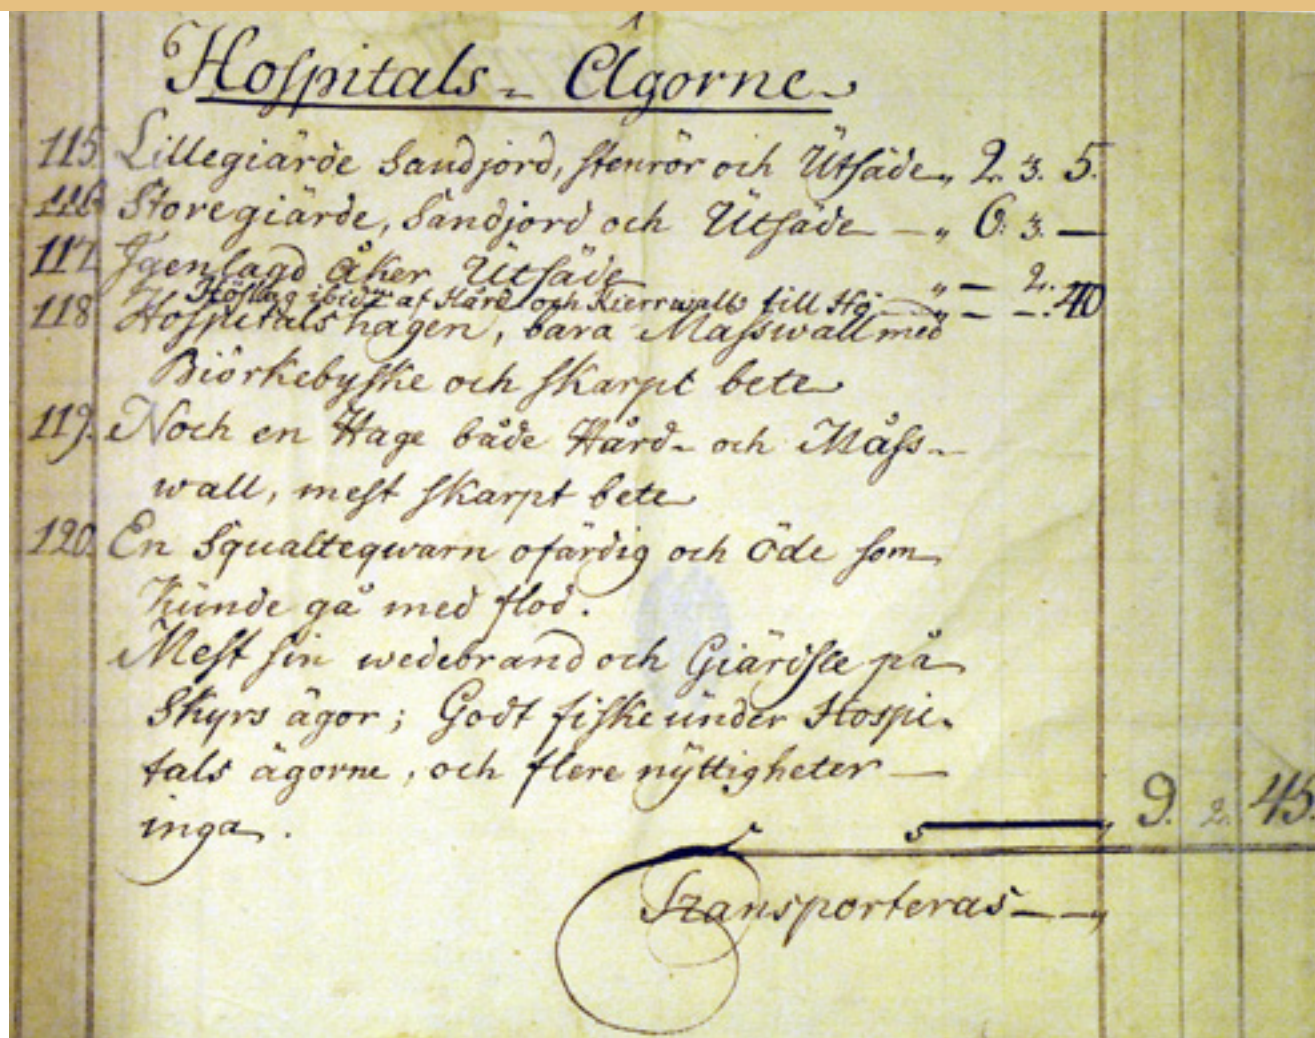 Hospitals - Ägorne
115 Lillegiärde Sandjord, stenrör och Ütsäde „ 2. 3. 5.
116 Storegiärde, Sandjord och Ütsäde — „ 6. 3. —
117 Igenlagd Åker Ütsäde „ — 2.
Höslag ibid: af Hård och Kierrwalls till Hö — „ — — . 40
118 Hospitalshagen, bara Masswall med
Biörkebyske och skarpt bete
119. Noch en Hage både Hård- och Måss-
wall, mest skarpt bete
120. En Squalteqwarn ofärdig och öde som
Künde gå med flod.
Mest sin wedebrand och Giärdsle på
Skyrs ägor; Godt fiske ünder Hospi-
tals ägorne, och flere nÿttigheter —
inga. 9. 2. 45.
Transporteras — —